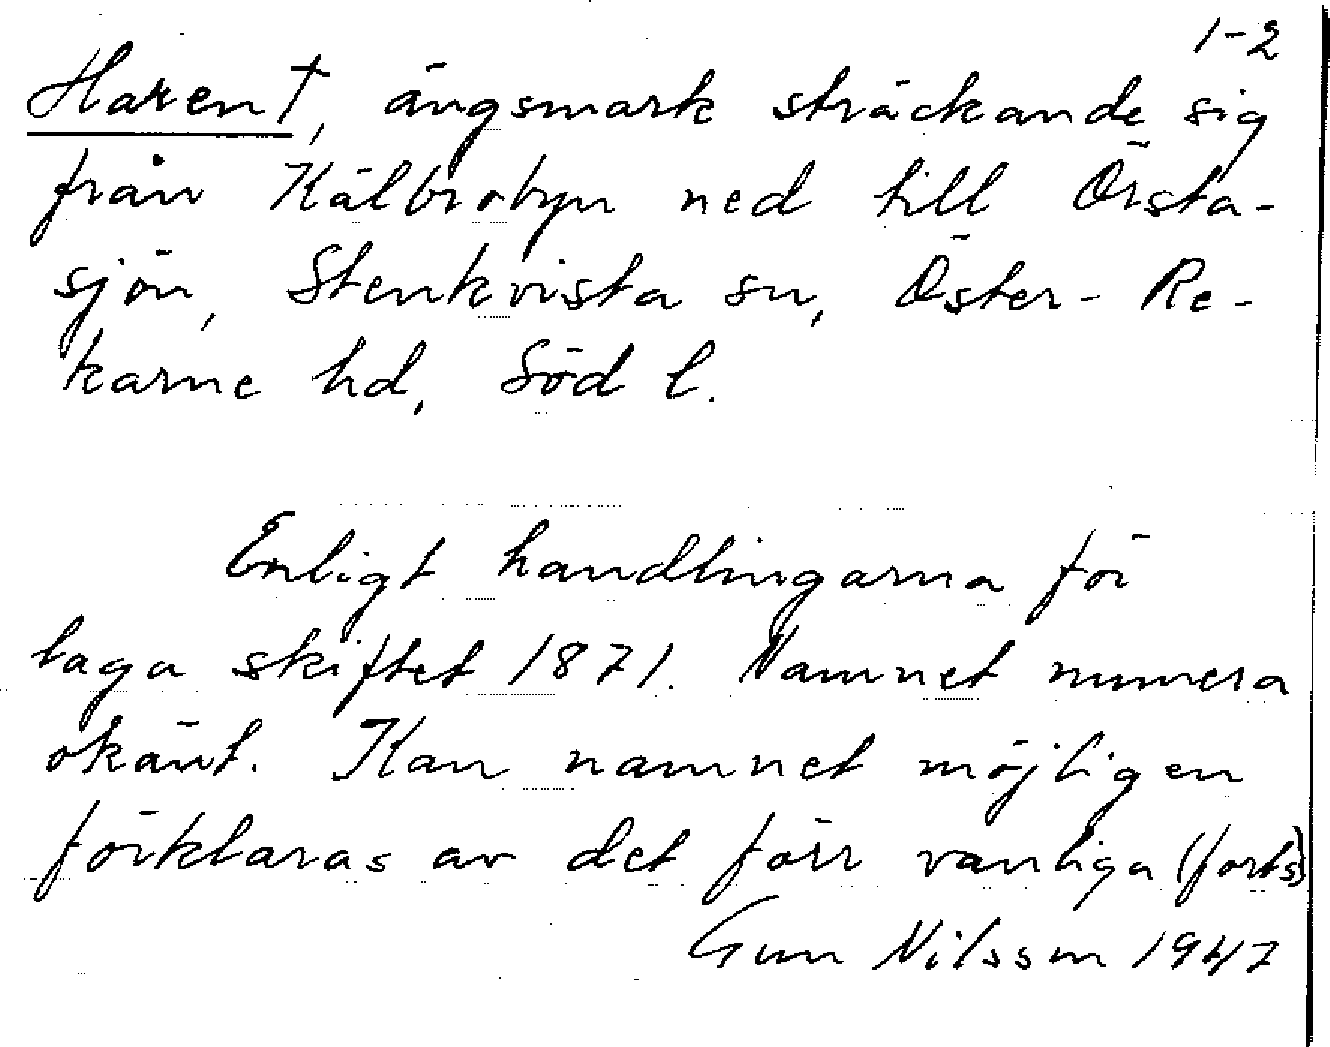 1-2
Haren†, ängsmark sträckande sig
från Kälbrobyn ned till Örsta-
sjön, Stenkvista sn, Öster-Re-
karne hd, Söd l.
Enligt handlingarna för
laga skiftet 1871. Namnet numera
okänt. Kan namnet möjligen
förklaras av det förr vanliga (forts)
Gun Nilsson 1947